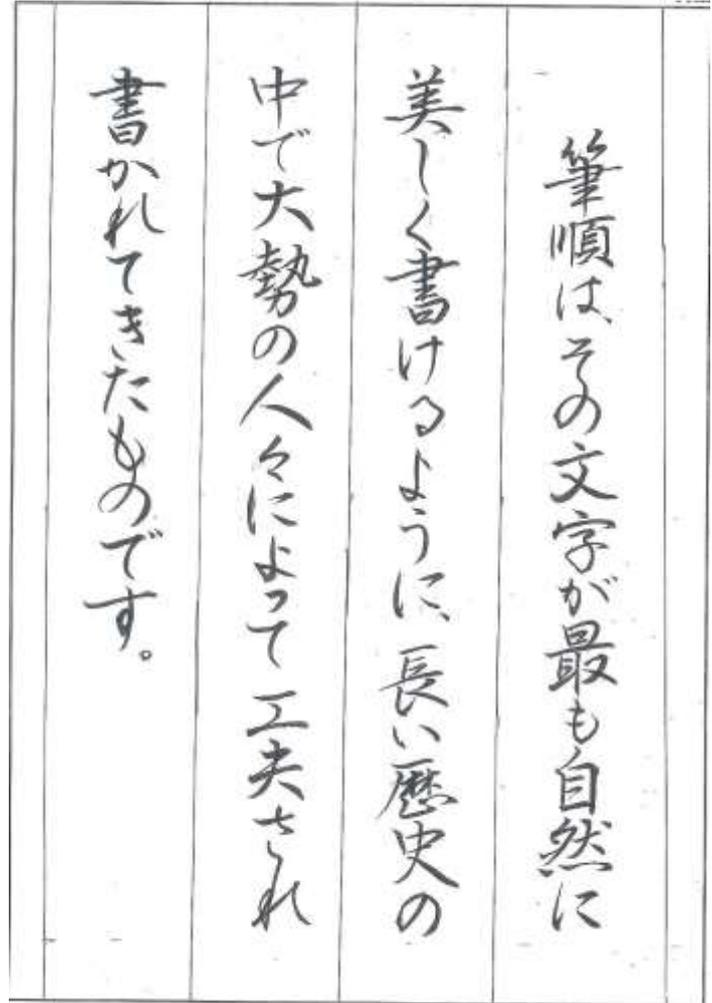 筆順は、その文字が最も自然に
美しく書けるように、長い歴史の
中で大勢の人々によって工夫され
書かれてきたものです。